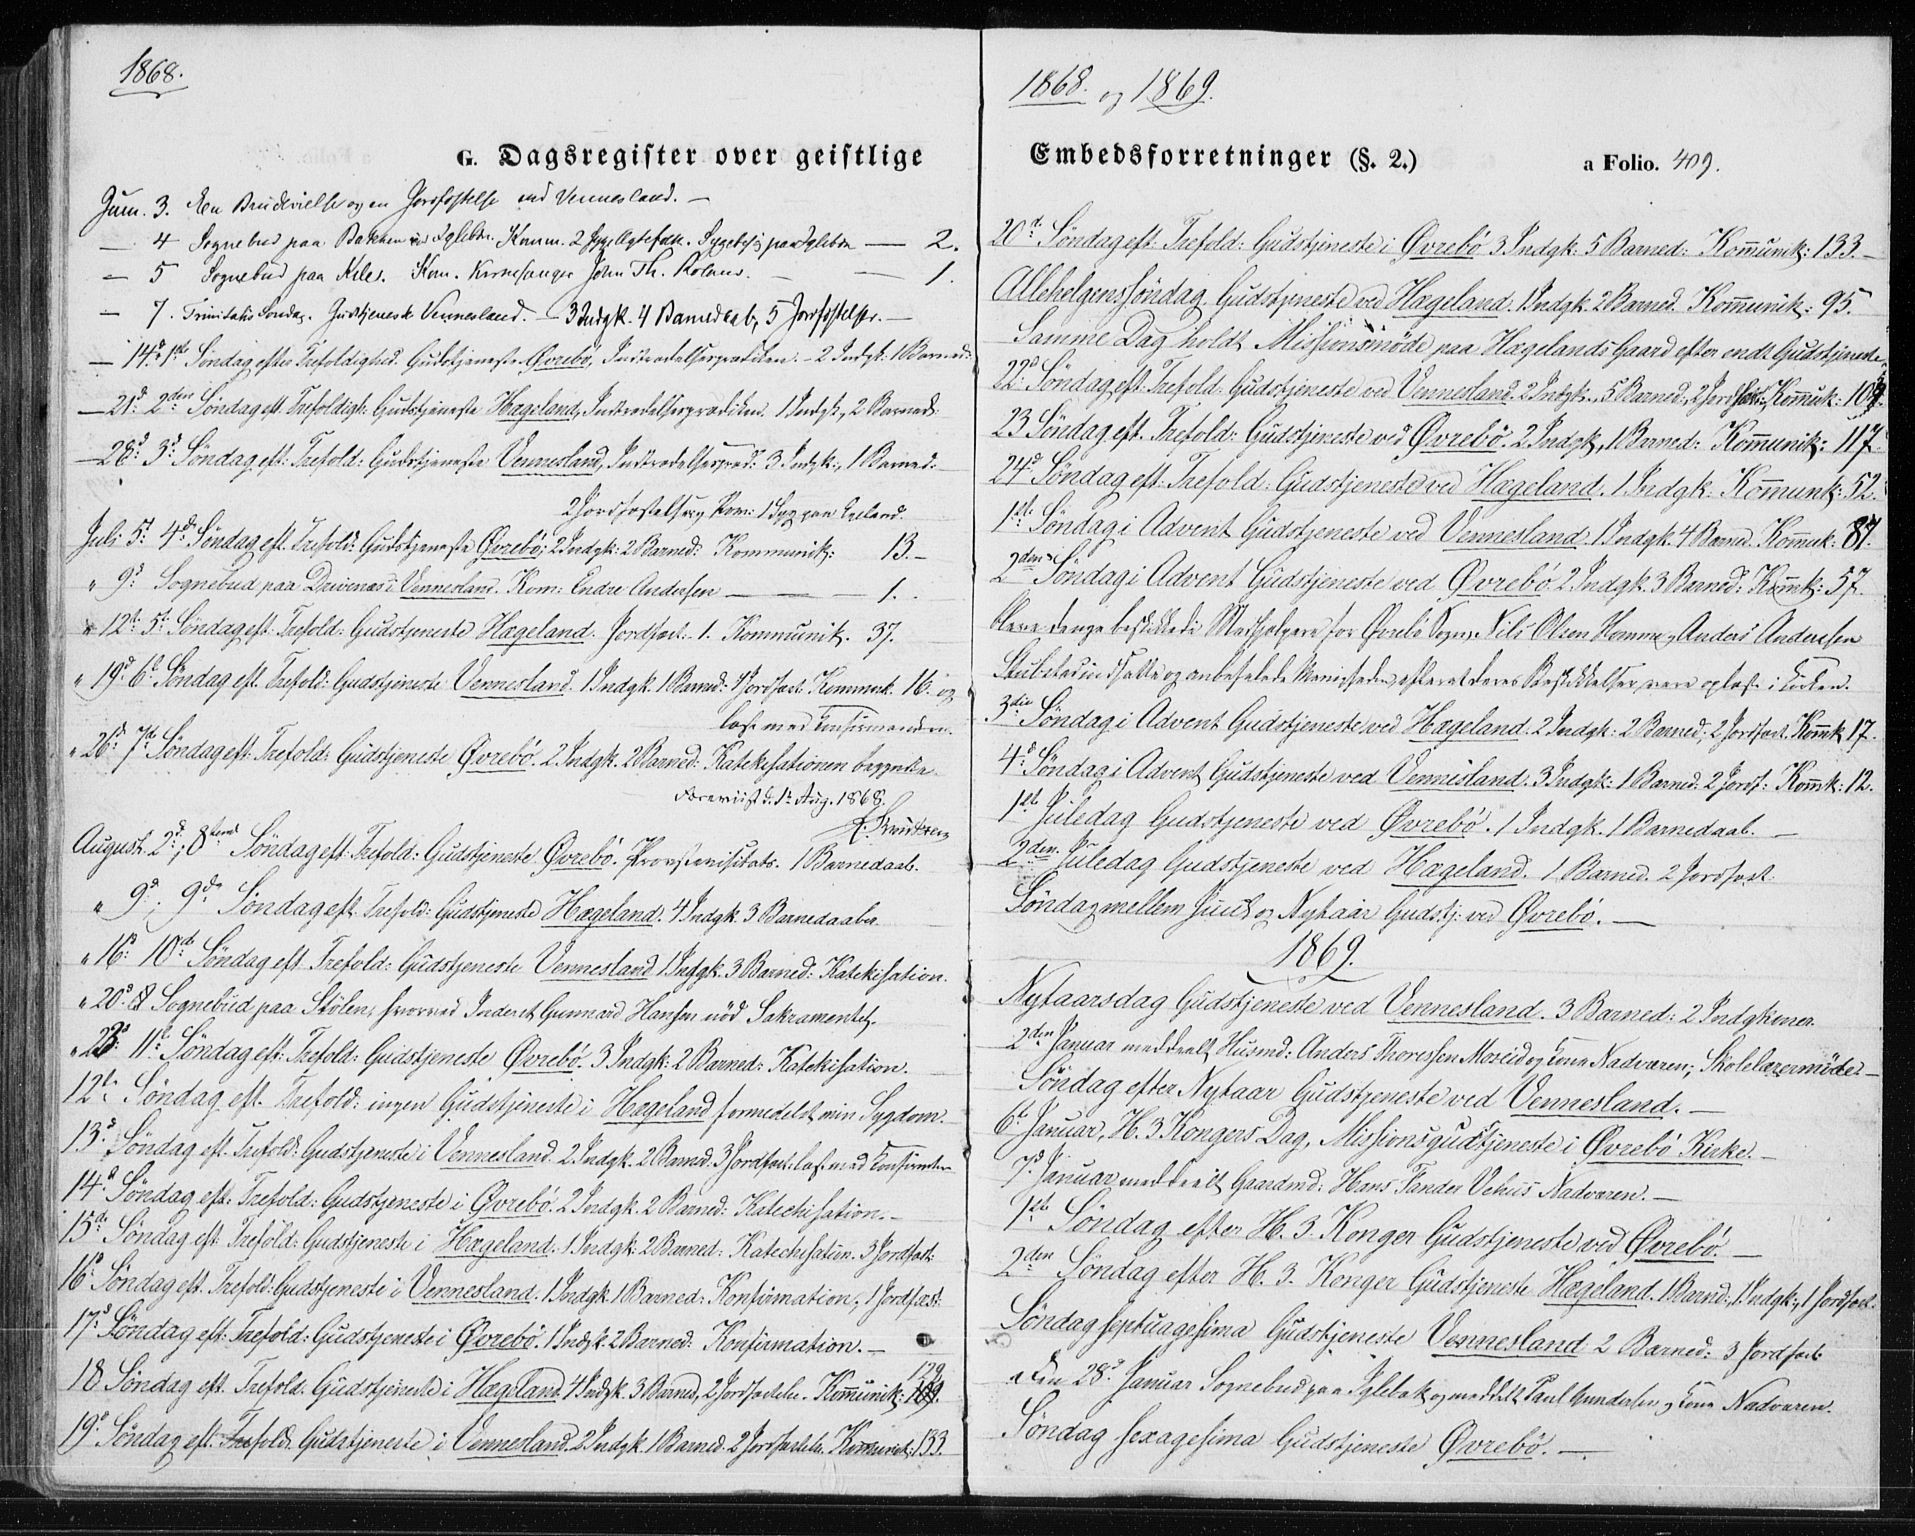 1868.
G. Dagsregister over geistlige
Juni. 3. En Brudevielse og en Jordfæstelse ved Vennesland. —
— 4 Sognebud paa Bakken ved Iglebæk. Komm. 2 — 2.
— 5 Sognebud paa Kiles. Kom. Kirkesanger John Th. Roland. — 1.
— 7. Trinitatis Søndag. Gudstjeneste Vennesland. — 3 Indgk. 4 Barnedaab, 5 Jordfæstelser. —
— 14d. 1ste Søndag efter Trefoldighed. Gudstjeneste Øvrebö, Indtrædelsesprædiken. — 2 Indgk: 1 Barned:
— 21d. 2den Söndag eft. Trefoldigh: Gudstjeneste Hægeland, Indtrædelsesprædiken. 1 Indgk, 2 Barned:
— 28d. 3d. Söndag eft: Trefold: Gudstjeneste Vennesland, Indtrædelsespræd: 3 Indgk:, 1 Barned.
2 Jordfæstelser, Kom: 1 Syg paa Eieland.
Juli 5t. 4d. Söndag eft. Trefold: Gudstjeneste Øvrebö; 2 Indgk: 2 Barned: Kommunik: 13. —
" 9d. Sognebud paa Drivenæs i Vennesland. Kom: Endre Andersen — — — 1.
" 12t. 5t. Söndag eft. Trefold: Gudstjeneste Hægeland. Jordfæst. 1. Kommunik. 37.
" 19d. 6t. Söndag eft. Trefold: Gudstjeneste Vennesland. 1 Indgk. 1 Barned: 1 Jordfæst. Kommunk. 16. og
læst med Confirmanderne.
" 26d. 7d. Söndag eft. Trefold: Gudstjeneste Øvrebö. 2 Indgk. 2 Barned: Katekisationen begyndte.
Foreviist d. 1t. Aug. 1868.
August. 2d; 8tende Söndag eft. Trefold: Gudstjeneste Øvrebö. Provstevisitats. 1 Barnedaab.
" 9d; 9d. Söndag eft. Trefold: Gudstjeneste Hægeland. 4 Indgk. 3 Barnedaaber
" 16d. 10de Söndag eft. Trefold: Gudstjeneste Vennesland 1 Indgk. 3 Barned: Katekisation.
" 20d. Sognebud paa Stölen; hvorved Inderst Gunnard Hansen nöd Sakramentet.
" 23d. 11t. Söndag eft: Trefold: Gudstjeneste Øvrebö. 3 Indgk: 2 Barned: Katekisation.
12te Söndag eft. Trefold: ingen Gudstjeneste i Hægeland formedelst min Sygdom.
13d. Söndag eft. Trefold: Gudstjeneste i Vennesland. 2 Indgk. 2 Barned. 3 Jordfæst. læst med Confirmter
14d. Söndag eft. Trefold: Gudstjeneste i Øvrebö. 2 Indgk. 2 Barned: Katechisation. —
15de Söndag eft. Trefold: Gudstjeneste i Hægeland. 1 Indgk: 2 Barned: Katechisation. 3 Jordfæst:
16d. Söndag eft. Trefold: Gudstjeneste i Vennesland. 1 Indgk. 1 Barned: Konfirmation. 1 Jordfæst:
17d. Söndag eft. Trefold: Gudstjeneste i Øvrebö. 1 Indgk. 2 Barned: Konfirmation. —
18 Söndag eft. Trefold. Gudstjeneste i Hægeland 4 Indgk. 3 Barned, 2 Jordfæstelser. Kommunik: 129.
19d. Söndag eft. Trefold. Gudstjeneste i Vennesland. 2 Indgk. 1 Barned. 2 Jordfæstelse. Komunik: 133.
1868. og 1869.
Embedsforretninger (§. 2.) a Folio. 409.
20d. Söndag eft. Trefold: Gudstjeneste i Øvrebö 3 Indgk: 5 Barned: Kommunik: 133. —
Allehelgenssöndag Gudstjeneste ved Hægeland. 1 Indgk. 2 Barned. Kommunik: 95.
Samme Dag holdt Missionsmöde paa Hægelands Gaard efter endt Gudstjeneste.
22d. Söndag eft. Trefold: Gudstjeneste ved Vennesland. 2 Indgk., 5 Barned:, 2 Jordfæst:, Kommuk:
23 Söndag eft. Trefold: Gudstjeneste ved Øvrebö. 2 Indgk, 1 Barned: Kommunik: 117.
24d Söndag eft: Trefold: Gudstjeneste ved Hægeland. 1 Indgk: Kommunk: 52.
1ste Söndag i Advent Gudstjeneste ved Vennesland. 1 Indgk. 4 Barned. Kommuk: 87.
2den Söndag i Advent Gudstjeneste ved Øvrebö. 2 Indgk. 3 Barned: Kommk: 57.
bleve de nye beskikkede Medhjælpere for Øvrebö Sogn, Nils Olsen Homme og Anders Anderssen
Stubstad indsatte og anbefalede Menigheden, efter at deres Beskikkelser vare oplæste i Kirken.
3die Söndag i Advent Gudstjeneste ved Hægeland. 2 Indgk: 2 Barned:, 2 Jordfæst. Kommk 17.
4d. Söndag i Advent Gudstjeneste ved Vennesland. 3 Indgk: 1 Barned: 2 Jordf: Kommk: 12.
1ste Juledag Gudstjeneste ved Øvrebö. 1 Indgk. 1 Barnedaab. —
2den Juledag Gudstjeneste ved Hægeland. 1 Barned. 2 Jordfæst:
Söndag mellem Juul og Nytaar Gudstj: ved Øvrebö. —
1869.
Nytaarsdag Gudstjeneste ved Vennesland. 3 Barned: 2 Indgkoner.
2den Januar meddeelt Husmd: Anders Thoressen Moseid og Kone Nadveren; Skolelærermöde —
Söndag efter Nytaar Gudstjeneste ved Vennesland. —
6t. Januar, H. 3 Kongers Dag, Missionsgudstjeneste i Øvrebö Kirke. —
7d Januar meddeelt Gaardmd: Hans Vehus Nadveren. —
1ste Söndag efter H. 3. Konger Gudstjeneste ved Øvrebö. —
2den Söndag efter H. 3. Konger Gudstjeneste Hægeland. 1 Barned:, 1 Indgk:, 1 Jordfæst.
Söndag septuagesima Gudstjeneste Vennesland 2 Barned: 3 Jordfæst:
Den 28d Januar Sognebud paa Iglebæk og meddelt Paul Gundersen og Kone Nadveren.
Söndag sexagesima Gudstjeneste Øvrebö. —